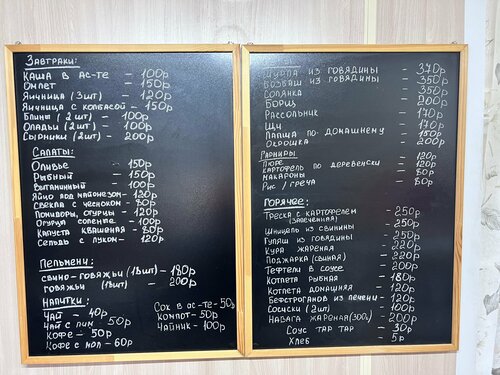 Завтраки:
Каша в ас-те - 100р
Омлет - 150р
Яичница (3шт) - 120р
Яичница с колбасой - 150р
Блины (2 шт) - 100р
Оладьи (2шт) - 100р
Сырники (2шт) - 200р
Салаты:
Оливье - 150р
Рыбный - 150р
Витаминный - 100р
Яйцо под майонезом - 120р
Свекла с чесноком - 80р
Помидоры, огурцы - 120р
Огурцы соленые - 100р
Капуста квашеная - 80р
Сельдь с луком - 120р
Пельмени:
свино-говяжьи (18шт) - 180р
говяжьи (18шт) - 200р
Напитки:
Чай - 40р
Чай с лим 50р
Кофе - 50р
Кофе с мол - 60р
Сок в ас-те - 50р
Компот - 50р
Чайник - 100р
Шурпа из говядины - 370р
Бозбаш из говядины - 350р
Солянка - 350р
Борщ - 200р
Рассольник - 170р
Щи - 170р
Лапша по-домашнему - 150р
Окрошка - 200р
Гарниры:
Пюре - 120р
Картофель по деревенски - 120р
Макароны - 80р
Рис / греча - 80р
Горячее:
Треска с картофелем - 250р
(запеченная)
Шницель из свинины - 250р
Гуляш из говядины - 250р
Кура жареная - 220р
Поджарка (свиная) - 220р
Тефтели в соусе - 200р
Котлета рыбная - 180р
Котлета домашняя - 120р
Бефстроганов из печени - 120р
Сосиски (2шт) - 100р
Навага жареная (300г) - 200р
Соус тар тар - 30р
Хлеб - 5р